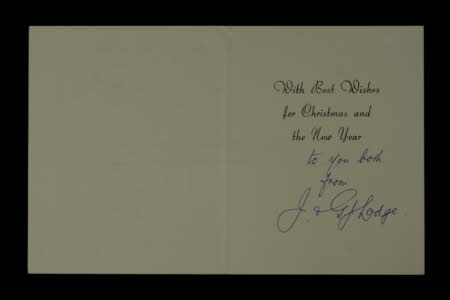 With Best Wishes
for Christmas and
the New Year
to you both
from
J. & G J Lodge